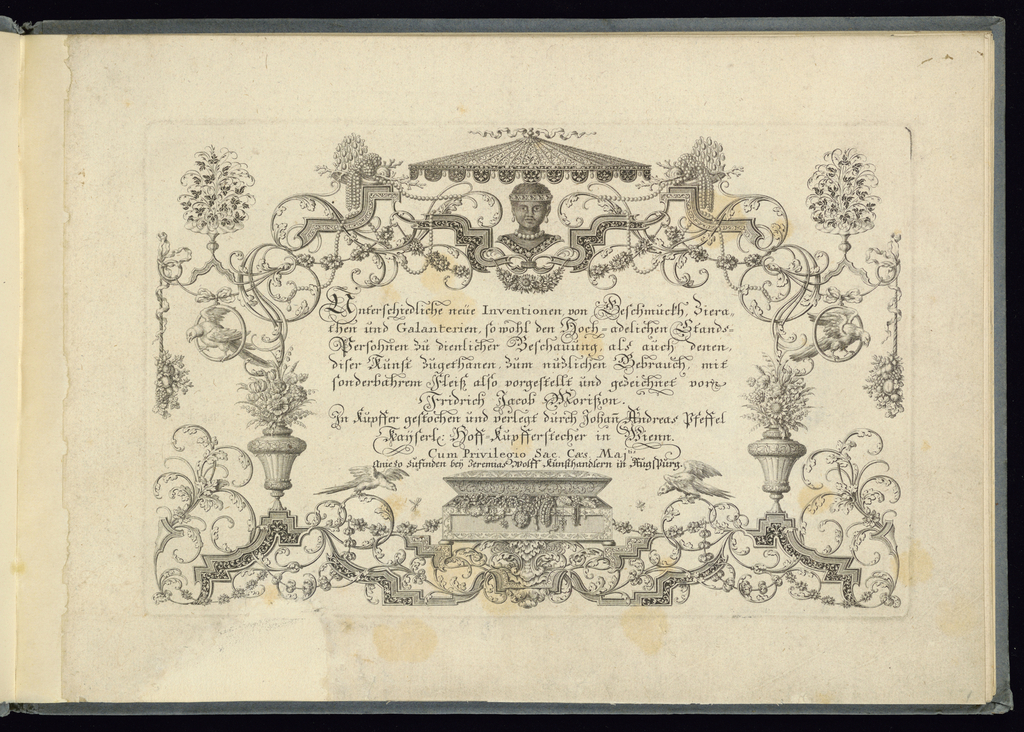 Unterschiedliche neüe Inventionen von Geschmückh, Ziera-
then und Galanterien, so wohl den Hoch-adelichen Stands-
Persohnen zü dienlicher Beschauüng, als auch denen,
diser Künst zügethanen, züm nüzlichen Gebrauch, mit
sonderbahrem Fleiß also vorgestellt ünd gezeichnet von
Fridrich Jacob Morißon.
In Küpffer gestochen ünd verlegt dürch Johan Andreas Pfeffel
Kayserl: Hoff-Küpfferstecher in Wienn.
Cum Privilegio Sac. Cæs. Maj.tis
Anie zo zufinden bey Jeremias Wolff Kunsthandlern in Augspürg.